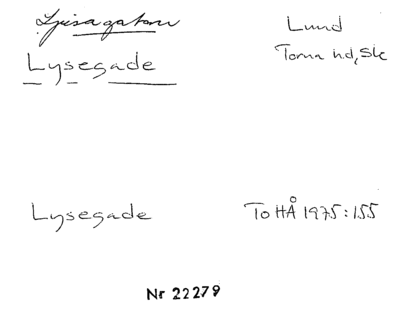 Ljusagatan
Lund
Lysegade
Torna hd, Sk
Lysegade
ToHÅ 1975:155
Nr 22279